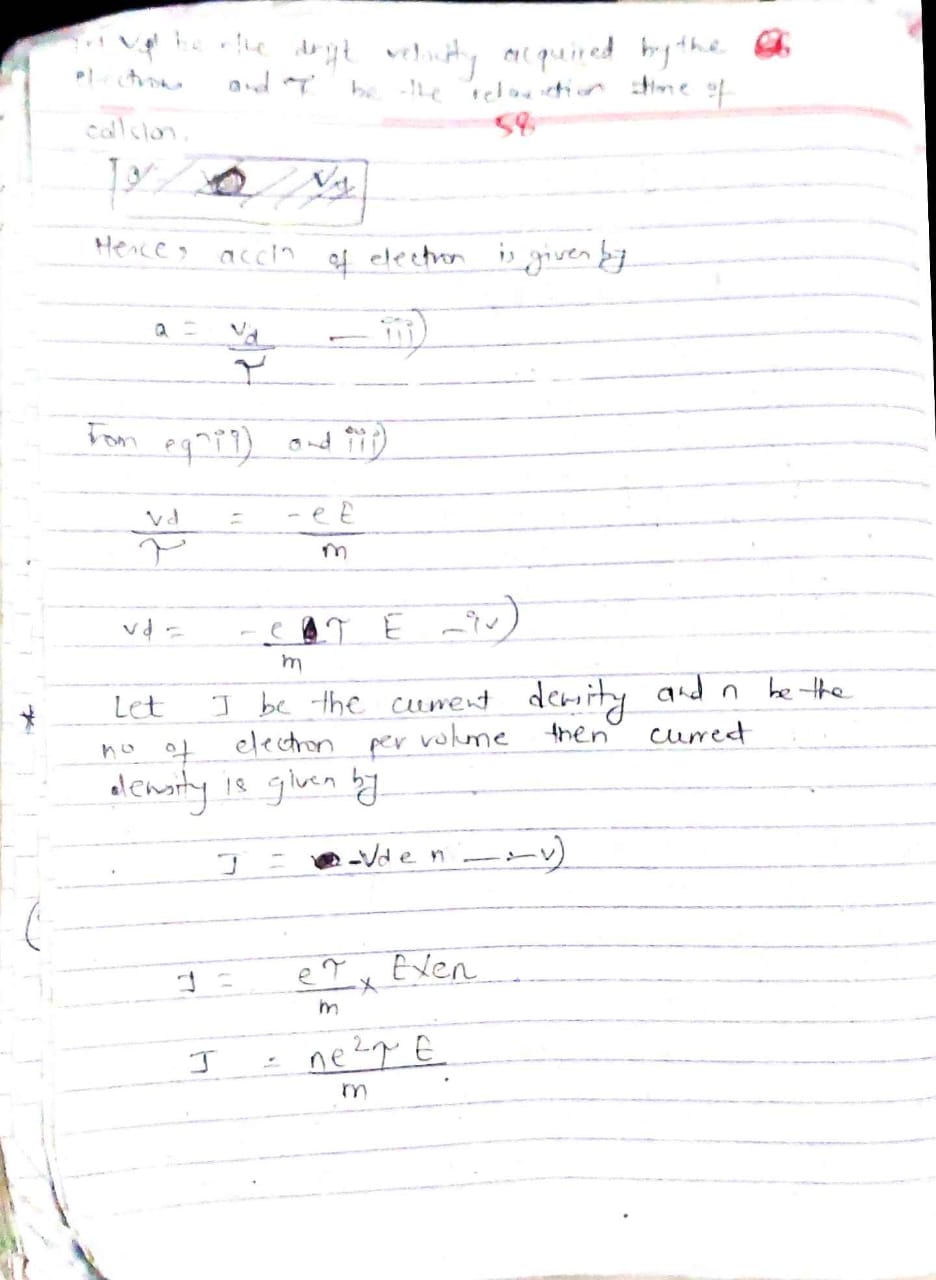 Let vd be the drift velocity acquired by the
electron and τ be the relaxction time of
58
collsion.
Vd
Hence, accln of electron is given by
a = vd/τ — iii)
From eqn ii) and iii)
vd/τ = -eE/m
vd = -eτ/m E — iv)
* Let J be the current density and n be the
no of electron per volume then curred
density is given by
J = -Vd e n — v)
J = eτ/m × E×en
J = ne²τE/m